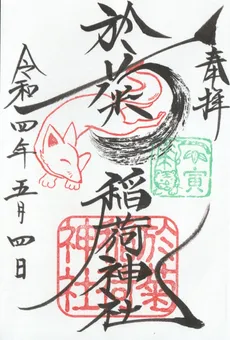 奉拝
於菊
稲荷神社
令和四年五月四日
於菊
稲荷
神社